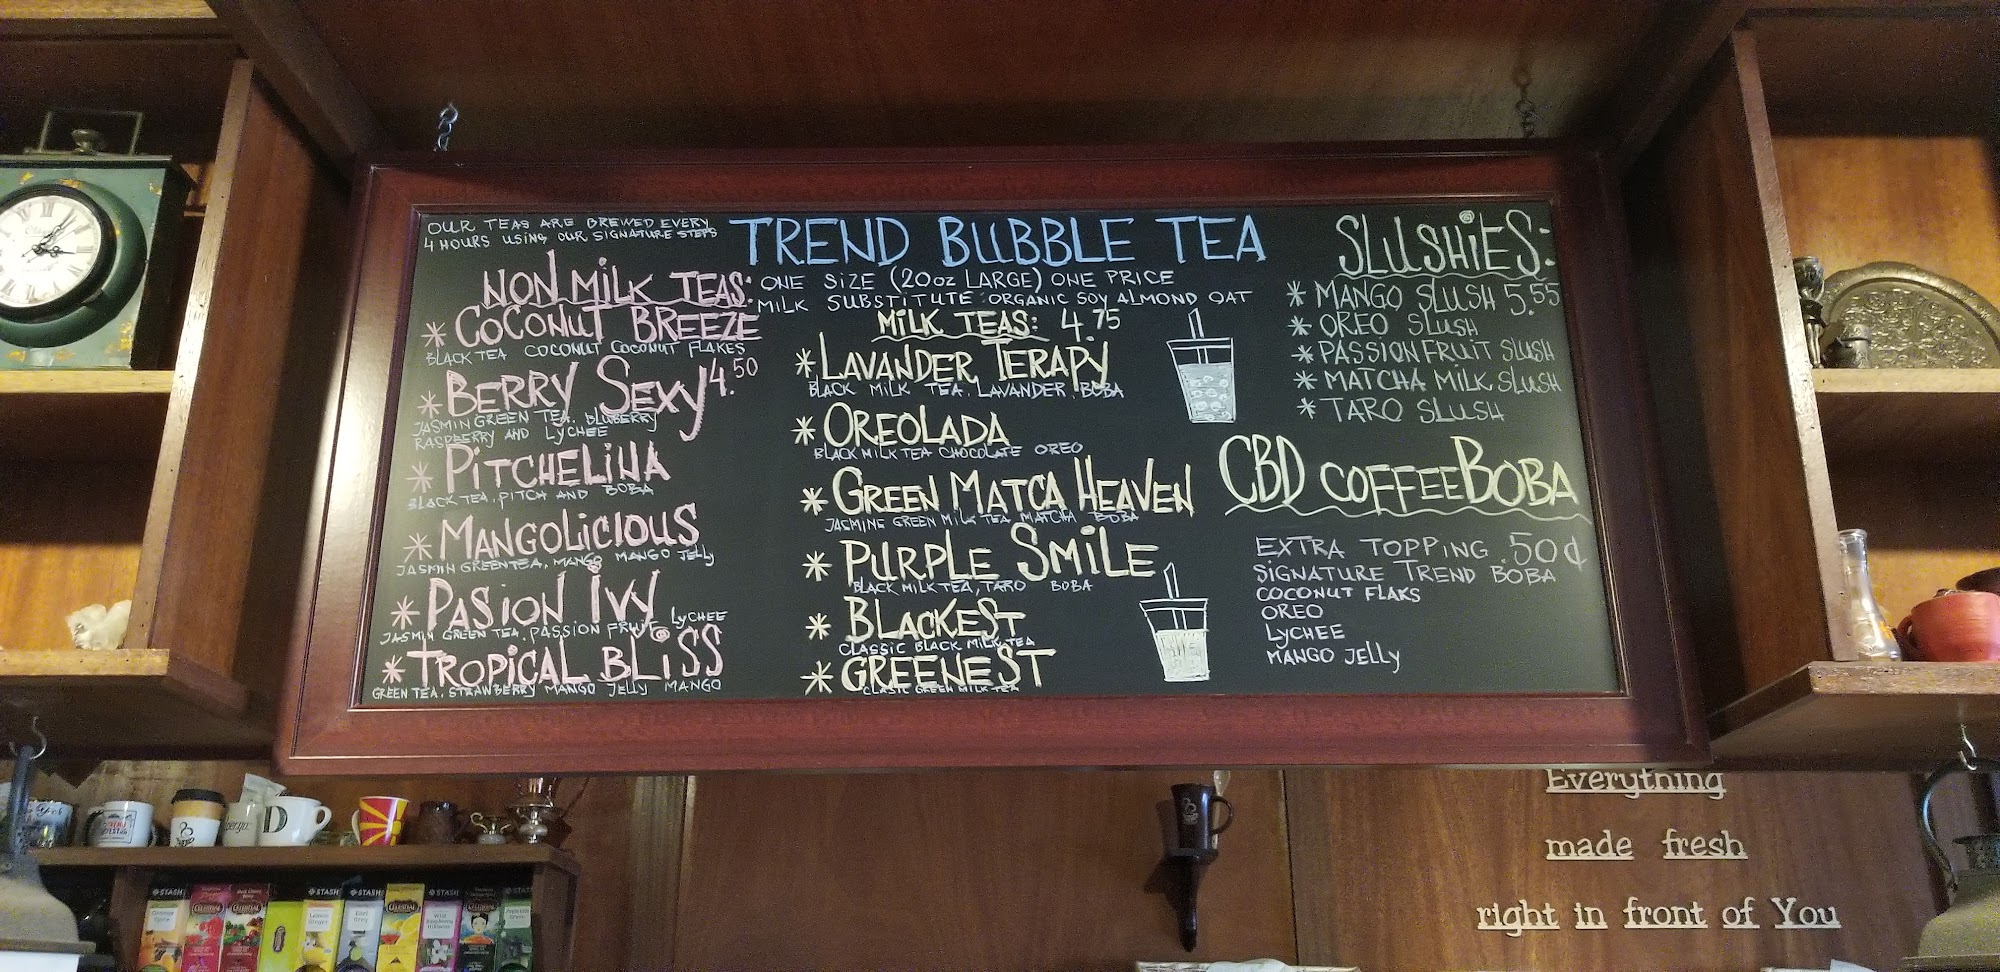 OUR TEAS ARE BREWED EVERY
4 HOURS USING OUR SIGNATURE STEPS
NON MILK TEAS:
* COCONUT BREEZE
BLACK TEA COCONUT COCONUT FLAKES
* BERRY SEXY 4.50
JASMIN GREEN TEA. BLUBERRY
RASPBERRY AND LYCHEE
* PITCHELINA
BLACK TEA, PITCH AND BOBA
* MANGOLICIOUS
JASMIN GREEN TEA, MANGO MANGO JELLY
* PASION IVY
JASMIN GREEN TEA, PASSION FRUIT LYCHEE
* TROPICAL BLISS
GREEN TEA, STRAWBERRY MANGO JELLY MANGO
TREND BUBBLE TEA
ONE SIZE (20oz LARGE) ONE PRICE
MILK SUBSTITUTE: ORGANIC SOY ALMOND OAT
MILK TEAS: 4.75
* LAVANDER TERAPY
BLACK MILK TEA, LAVANDER, BOBA
* OREOLADA
BLACK MILK TEA CHOCOLATE OREO
* GREEN MATCA HEAVEN
JASMINE GREEN MILK TEA MATCHA BOBA
* PURPLE SMILE
BLACK MILK TEA, TARO BOBA
* BLACKEST
CLASSIC BLACK MILK TEA
* GREENEST
CLASIC GREEN MILK TEA
SLUSHIES:
* MANGO SLUSH 5.55
* OREO SLUSH
* PASSION FRUIT SLUSH
* MATCHA MILK SLUSH
* TARO SLUSH
CBD COFFEE BOBA
EXTRA TOPPING .50¢
SIGNATURE TREND BOBA
COCONUT FLAKS
OREO
LYCHEE
MANGO JELLY
Everything
made fresh
right in front of You
D
STASH
STASH
STASH
CELESTIAL
CELESTIAL
CELESTIAL